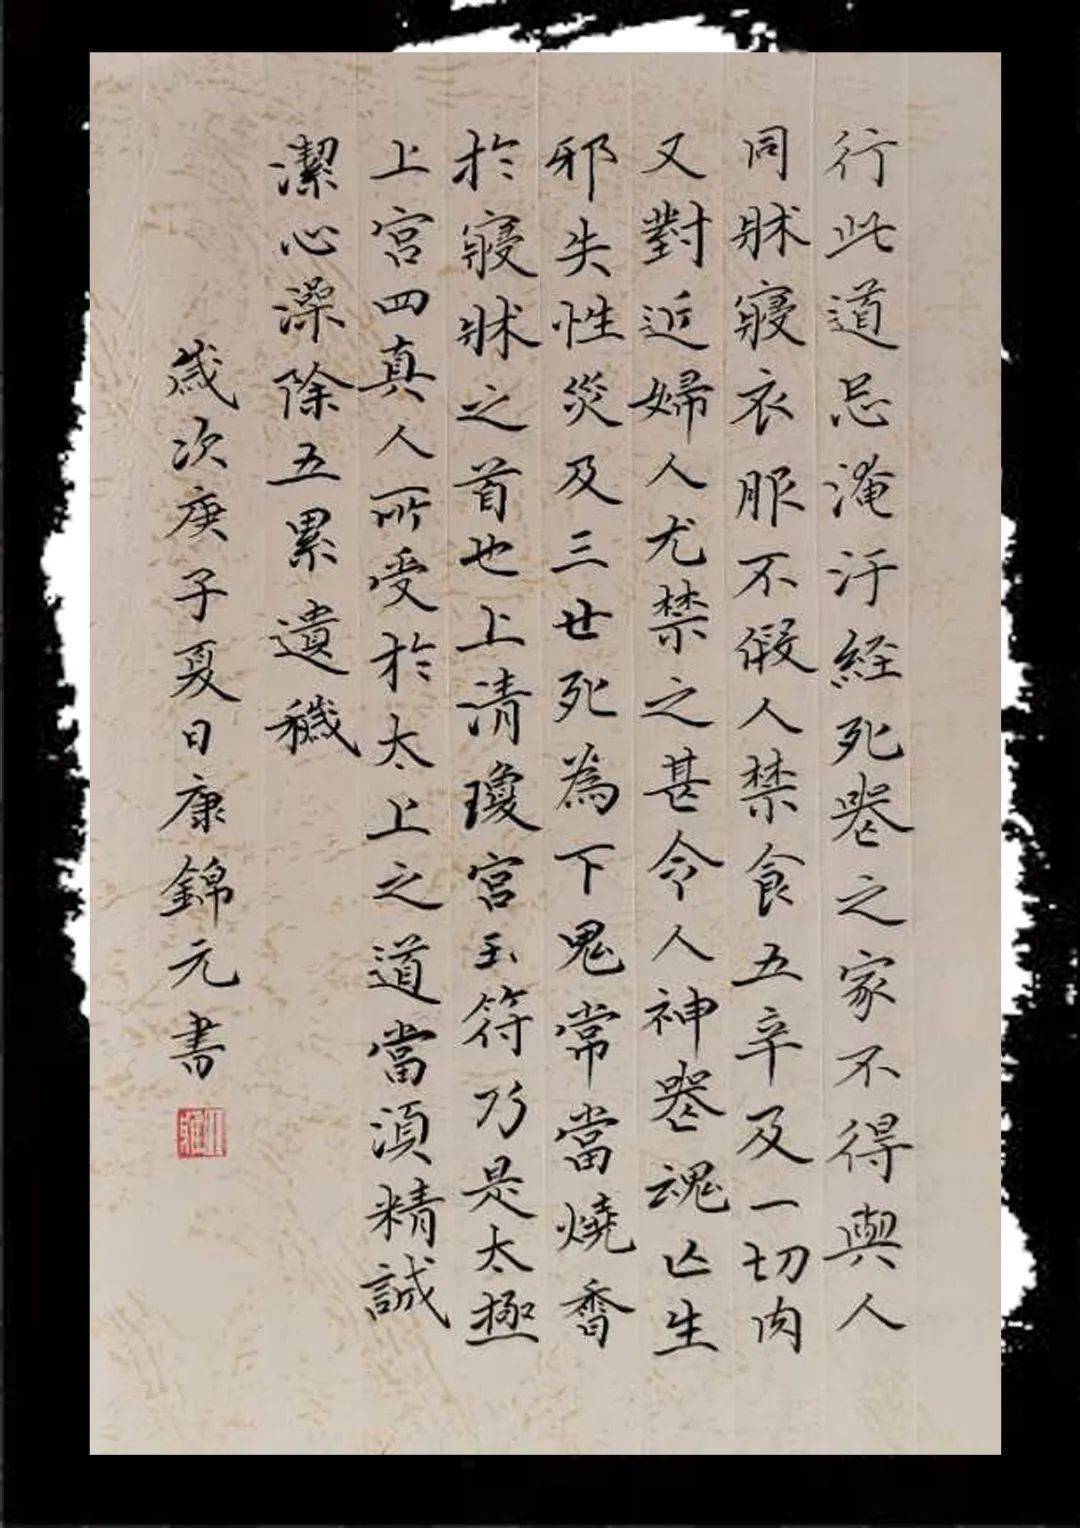 行此道忌淹汙経死喪之家不得與人
同牀寢衣服不假人禁食五辛及一切肉
又對近婦人尤禁之甚令人神喪魂亡生
邪失性災及三世死為下鬼常當燒香
於寢牀之首也上清瓊宮玉符乃是太極
上宮四真人所受於太上之道當須精誠
潔心澡除五累遺穢
歲次庚子夏日康錦元書